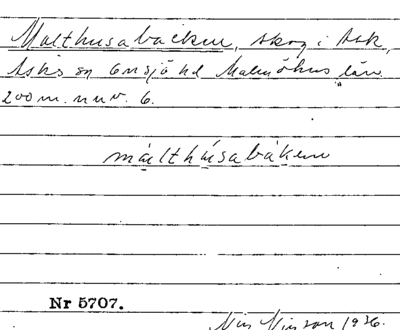 Malthusabacken, skog i Ask,
Asks sn Onsjö hd Malmöhus län.
200 m. nnv. 6.
målthúsabàken
Nr 5707.
Nils Nilsson 1936.